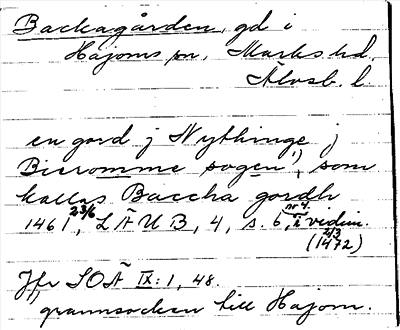 Backagården, gd i
Hajoms sn, Marks hd,
Älvsb. l.
en gord j Nythinge j
Bisromme sogen 1), som
kallas Baccha gordh
1461 23/6, LÄUB, 4, s. 6, nr 4, i vidim.
(1472) 2/3
Jfr SOÄ IX: 1, 48.
1) grannsocken till Hajom.